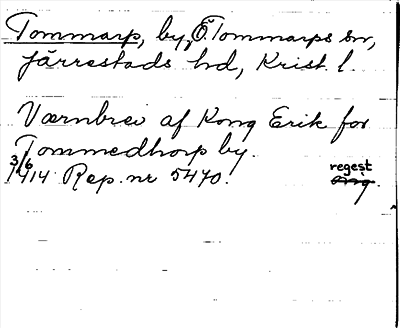 Tommarp, by, Ö. Tommarps sn,
Järrestads hd, Krist. l.
Værnbrev af Kong Erik for
Tommedhorp by.
3/6
1414 Rep. nr 5470. regest
orig.